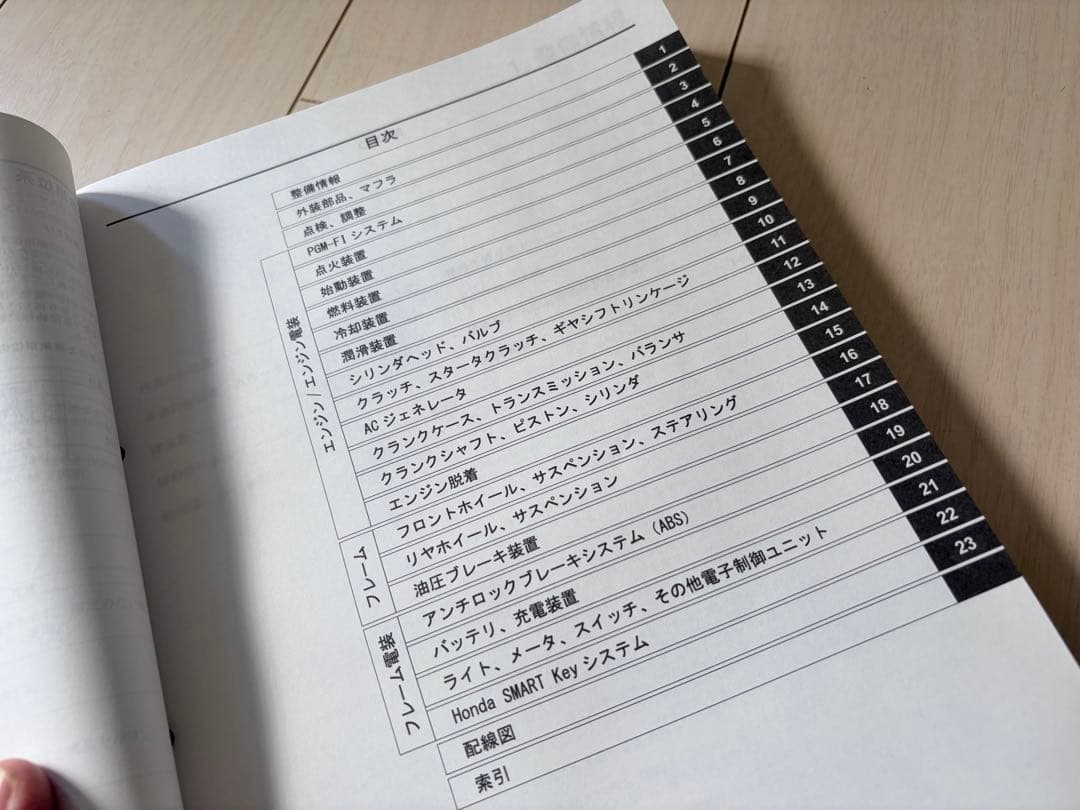 目次
整備情報 1
外装部品、マフラ 2
点検、調整 3
PGM-FI システム 4
点火装置 5
始動装置 6
燃料装置 7
冷却装置 8
潤滑装置 9
シリンダヘッド、バルブ 10
クラッチ、スタータクラッチ、ギヤシフトリンケージ 11
AC ジェネレータ 12
クランクケース、トランスミッション、バランサ 13
クランクシャフト、ピストン、シリンダ 14
エンジン脱着 15
エンジン/エンジン電装
フロントホイール、サスペンション、ステアリング 16
リヤホイール、サスペンション 17
油圧ブレーキ装置 18
アンチロックブレーキシステム (ABS) 19
フレーム
バッテリ、充電装置 20
ライト、メータ、スイッチ、その他電子制御ユニット 21
Honda SMART Key システム 22
フレーム電装
配線図 23
索引